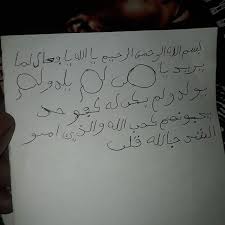 بسم الله الرحمن الرحيم يا الله يا فعال لما
يريد يا من لم يلد ولم
يولد ولم يكن له كفو حد
يحبونهم كحب الله والذين امنو
اشد حبالله قلب